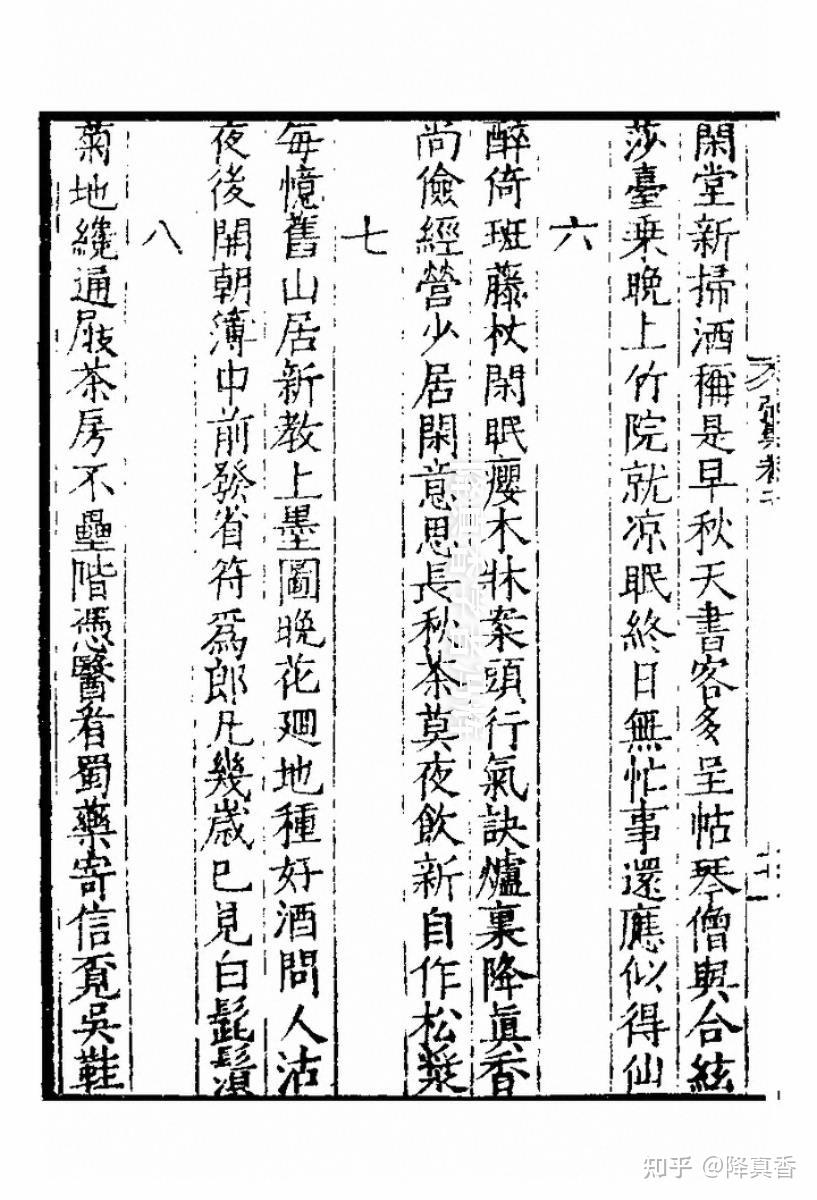 閑堂新掃洒稱是早秋天書客多呈帖琴僧與合絃
莎臺乗晚上竹院就凉眠終日無忙事還應似得仙
六
醉倚斑藤杖閑眠癭木牀案頭行氣訣爐裏降眞香
尚儉經營少居閑意思長秋茶莫夜飲新自作松漿
七
每憶舊山居新教上墨圖晚花迴地種好酒問人沽
夜後開朝簿申前發省符爲郎凡幾歳已見白髭鬚
八
菊地纔通屐茶房不壘階憑醫看蜀藥寄信覔吳鞋
知乎 @降真香